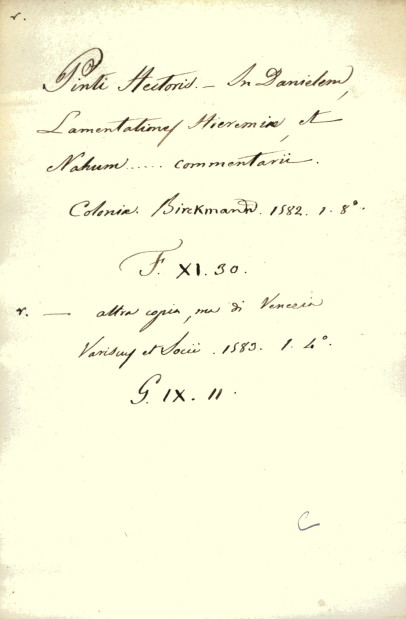 r.
Pinti Hectoris. – In Danielem,
Lamentationes Hieremiæ, et
Nahum..... commentarii.
Coloniæ. Birckmann. 1582. 1. 8°.
F. XI. 30.
r. — altra copia, ma di Venezia
Variscus et Socii. 1583. 1. 4°.
G. IX. 11.
C